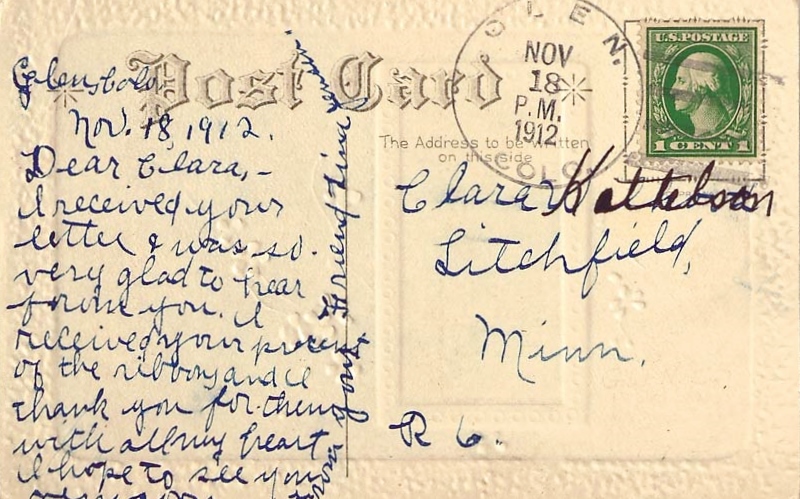 Post Card
The Address to be written
on this side
GLEN.
NOV
18
P.M.
1912
COLO.
U.S. POSTAGE
1 CENT 1
Glens Colo
Nov. 18, 1912.
Dear Clara,-
I received your
letter & was so.
very glad to hear
from you. I
received your present
of the ribbons and I
thank you for them
with all my heart
I hope to see you
very
From your Friend
Clara
Litchfield,
Minn.
R 6.